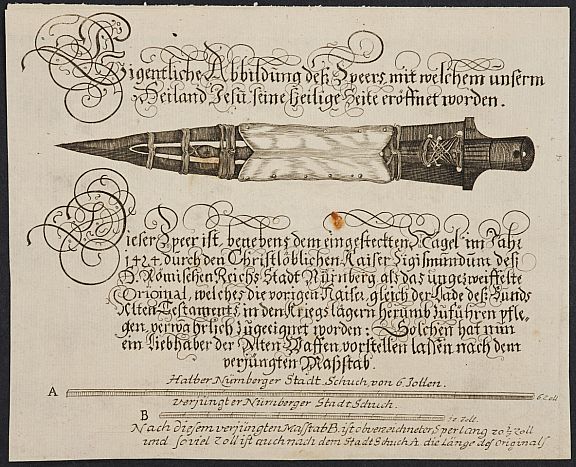 Eigentliche Abbildung deß Speers, mit welchem unserm
Heiland Jesu seine Heilige Seite eröffnet worden.
Dieser Speer ist, benebens dem eingesteckten Nagel im Jahr
1424. durch den Christlöblichen Kaiser Sigismundum des
H. Römischen Reichs Stadt Nürnberg als das ungezweiffelte
Original, welches die vorigen Kaiser gleich der Lade deß Bunds
Alten Testaments, in den Kriegslägern herumb zuführen pfle-
gen, verwahrlich zugeeignet worden: Solchen hat nun
ein Liebhaber der Alten Waffen vorstellen lassen nach dem
verjüngten Maßstab.
Halber Nürnberger Stadt Schuch, von 6 Zollen.
A 6 Zoll
verjüngter Nürnberger Stadt Schuch.
B Zoll.
Nach diesem verjüngten Masstab B, ist obverzeichneter Sper lang 20½ Zoll
und so viel Zoll ist auch nach dem Stadt Schuch A. die Länge des Originals